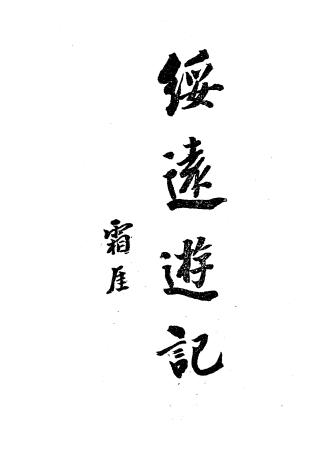 綏遠遊記
霜厓